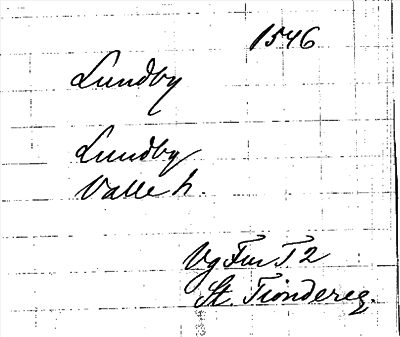 1546
Lundby
Lundby
Valle h.
Vg Fur T2
St. Tiondereg.